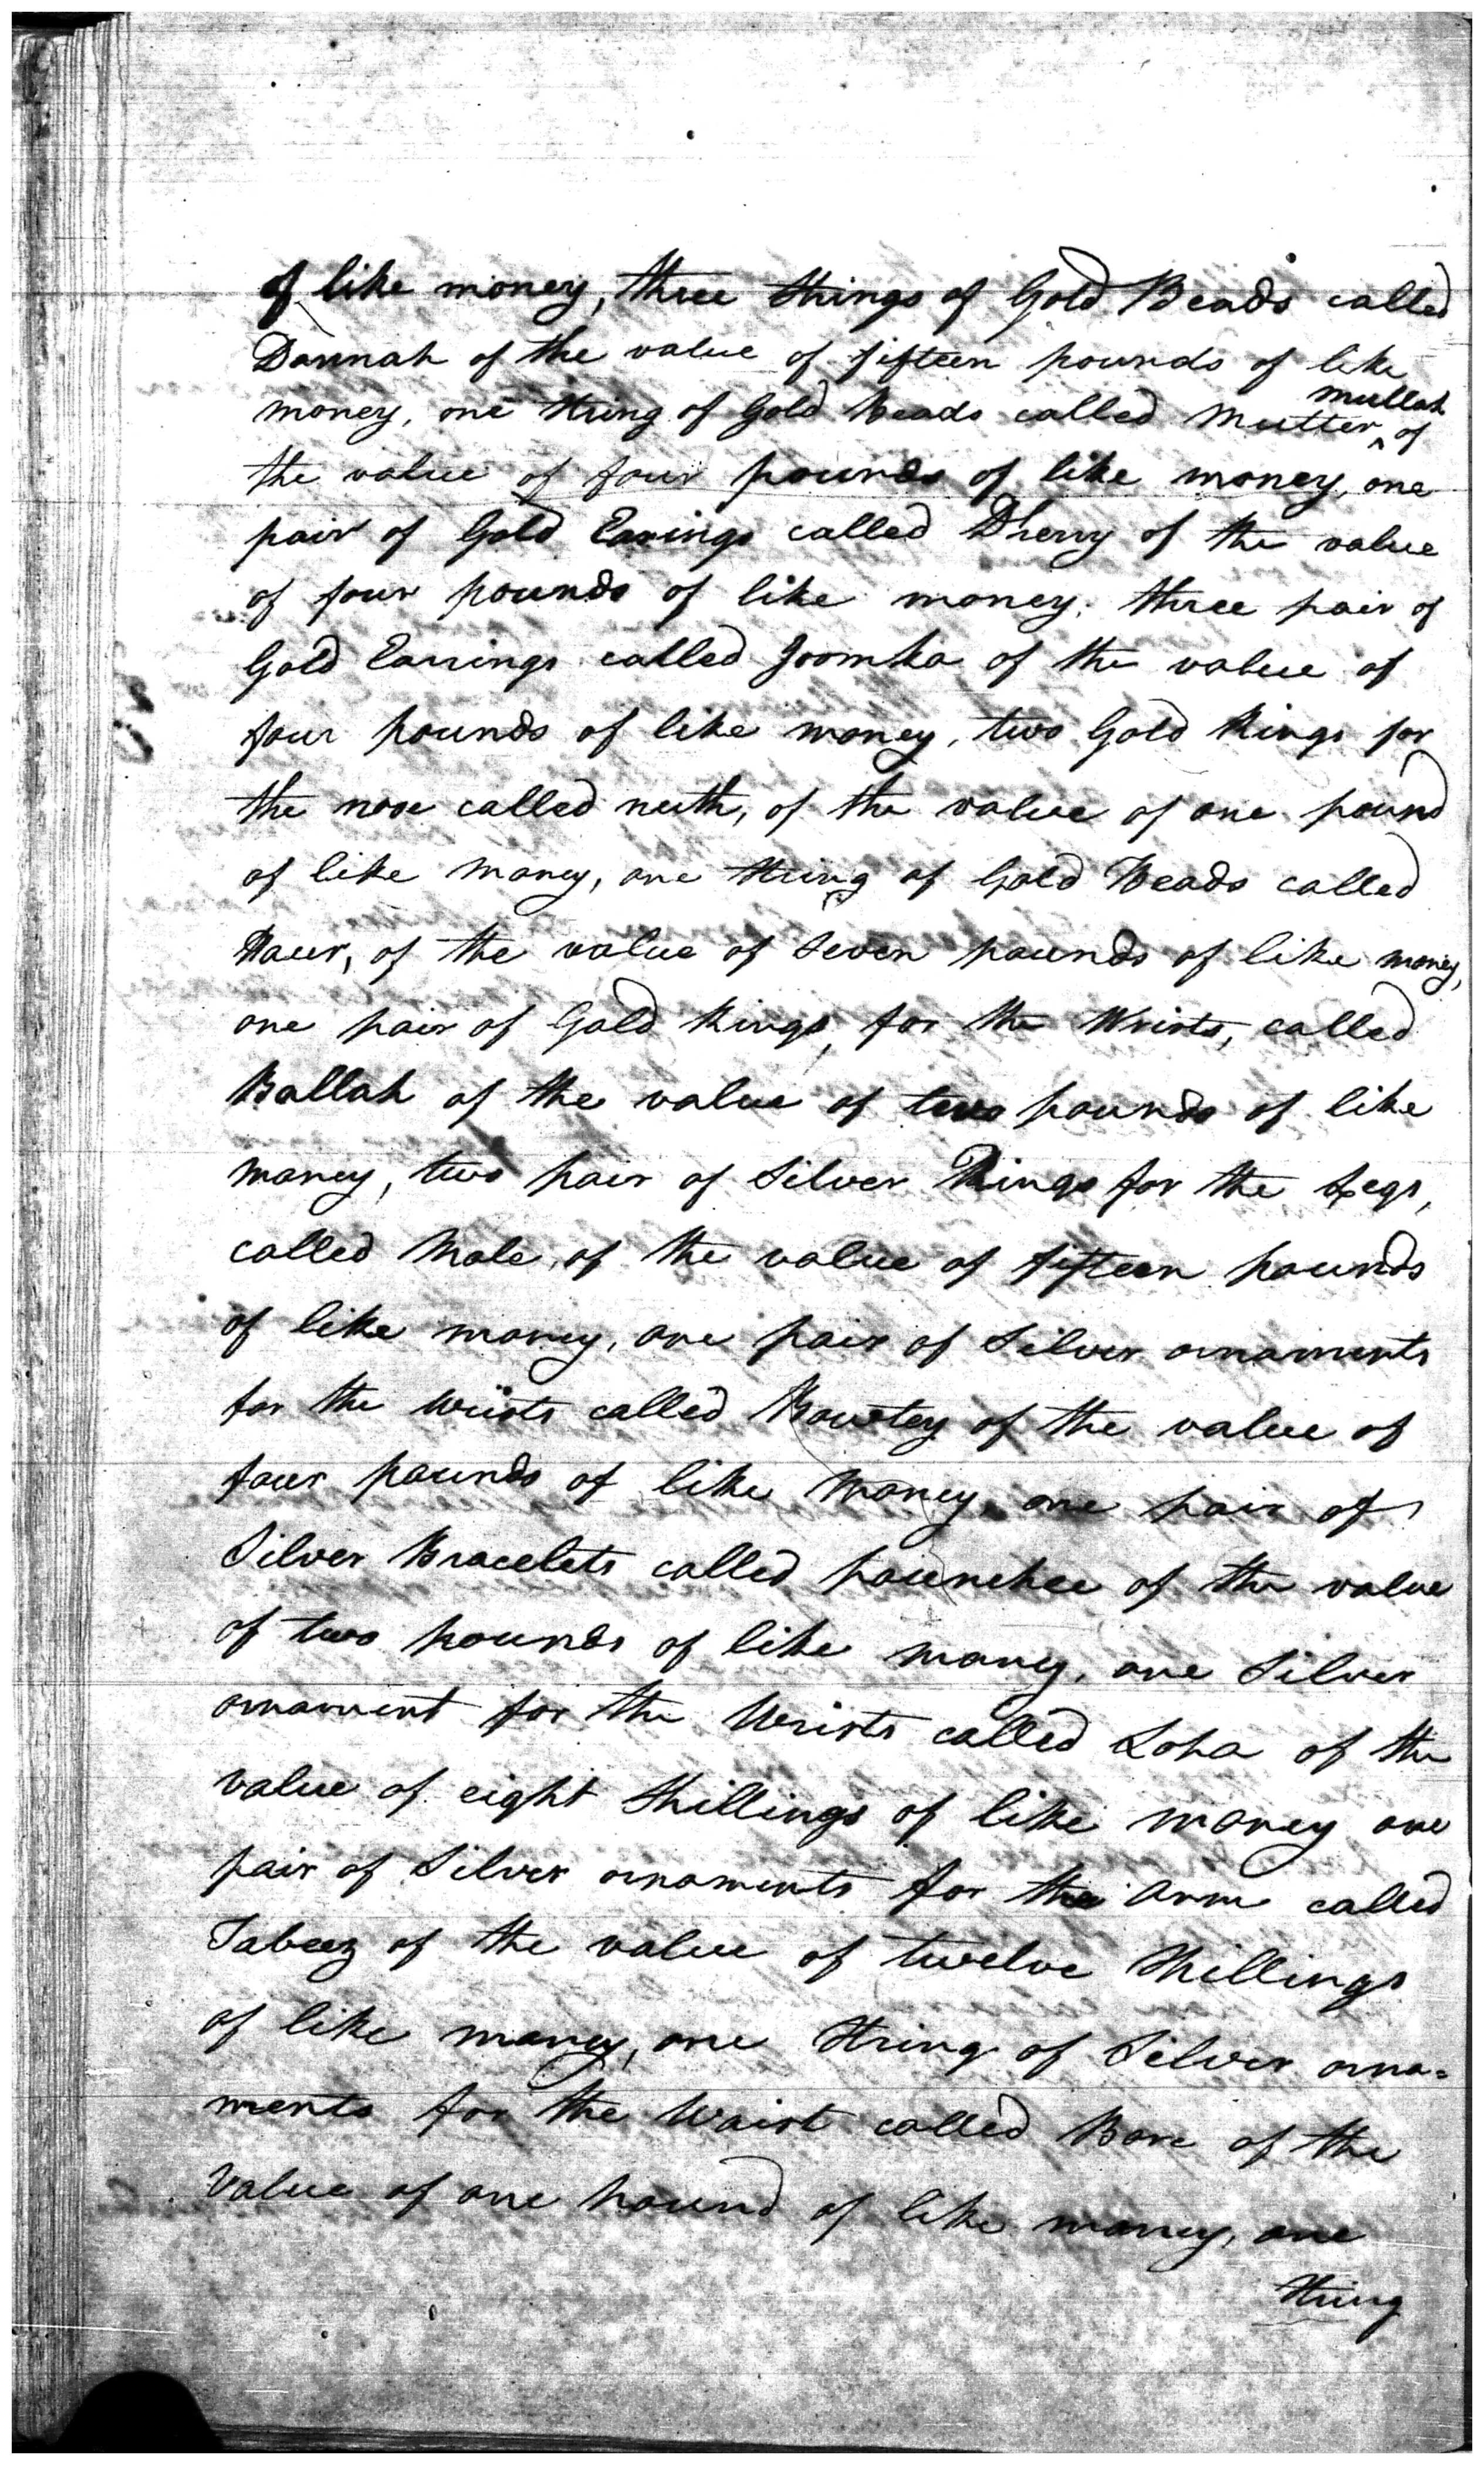 of like money, three strings of Gold Beads called
Dannah of the value of fifteen pounds of like
money, one string of Gold Beads called Mutter mullah of
the value of four pounds of like money, one
pair of Gold Earings called Dherry of the value
of four pounds of like money, three pair of
Gold Earrings called Joomka of the value of
four pounds of like money, two Gold Rings for
the nose called nuth, of the value of one pound
of like money, one string of Gold Beads called
Haur, of the value of Seven pounds of like money,
one pair of Gold Rings, for the Wrists, called
Ballah of the value of two pounds of like
money, two pair of Silver Rings for the Legs,
called Male, of the value of fifteen pounds
of like money, one pair of Silver ornaments
for the Wrists called of the value of
four pounds of like money one pair of
Silver Bracelets called pounchee of the value
of two pounds of like money, one Silver
ornament for the Wrists called Loha of the
value of eight Shillings of like money one
pair of Silver ornaments for the Arm called
Tabeez of the value of twelve Shillings
of like money, one String of Silver orna=
ments for the Waist called Bore of the
Value of one pound of like money, one
String